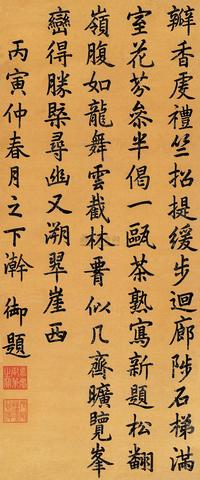 瓣香虔禮竺招提緩步迴廊陟石梯滿
室花芬參半偈一甌茶熟寫新題松翻
嶺腹如龍舞雲截林似几齊曠覽峯
巒得勝槩尋幽又溯翠崖西
丙寅仲春月之下澣 御題